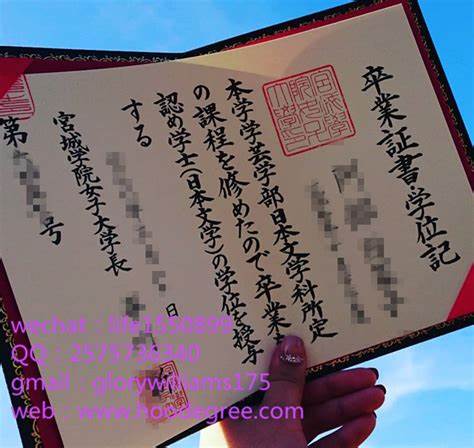 卒業証書・学位記
本学学芸学部日本文学科所定
の課程を修めたので卒業を
認め学士(日本文学)の学位を授与
する
日
宮城学院女子大学長
第 号
wechat : life1550899
QQ : 2575736340
gmail : glorywilliams175
web : www.hondegree.com